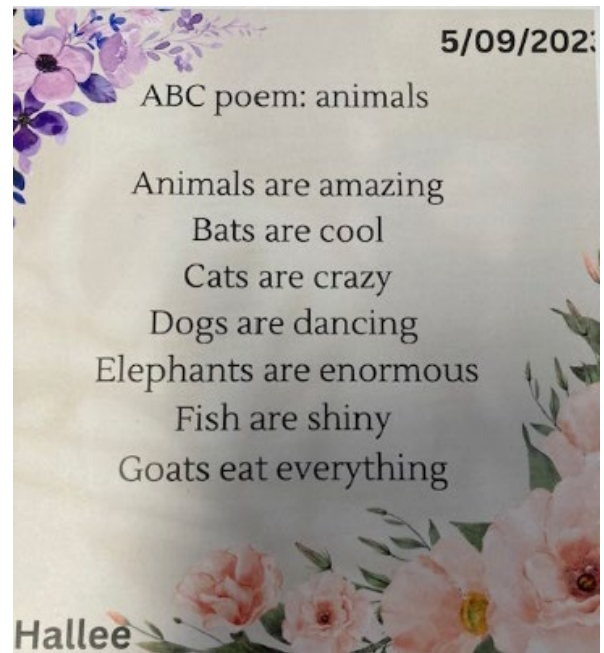 5/09/2023
ABC poem: animals
Animals are amazing
Bats are cool
Cats are crazy
Dogs are dancing
Elephants are enormous
Fish are shiny
Goats eat everything
Hallee